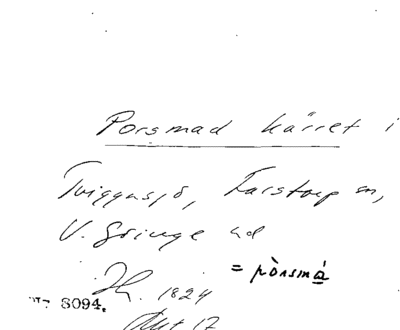 Porsmad kärret i
Tviggasjö, Farstorp sn,
V. Göinge hd
= pòrsmá
1824
8094.
Akt 17